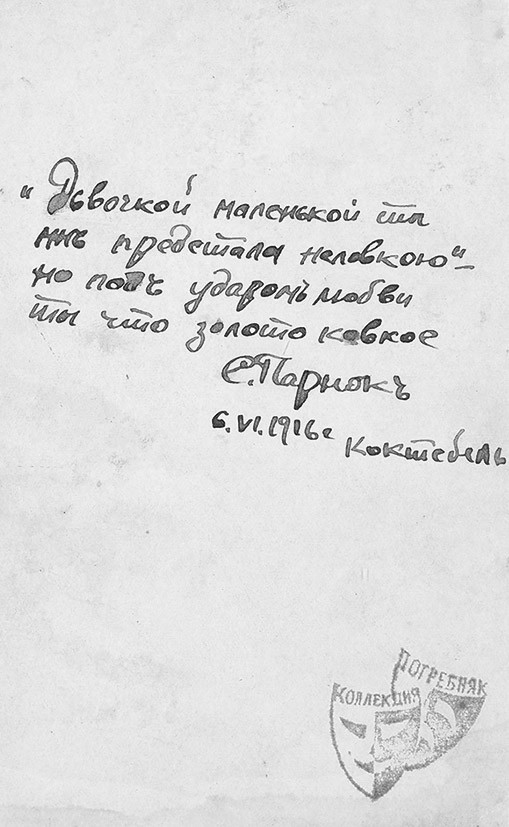 "Дѣвочкой маленькой ты
мнѣ предстала неловкою"—
но подъ ударомъ любви
ты что золото ковкое
С. Парнокъ
6. VI. 1916 г
Коктебель
КОЛЛЕКЦИЯ
ПОГРЕБНЯК